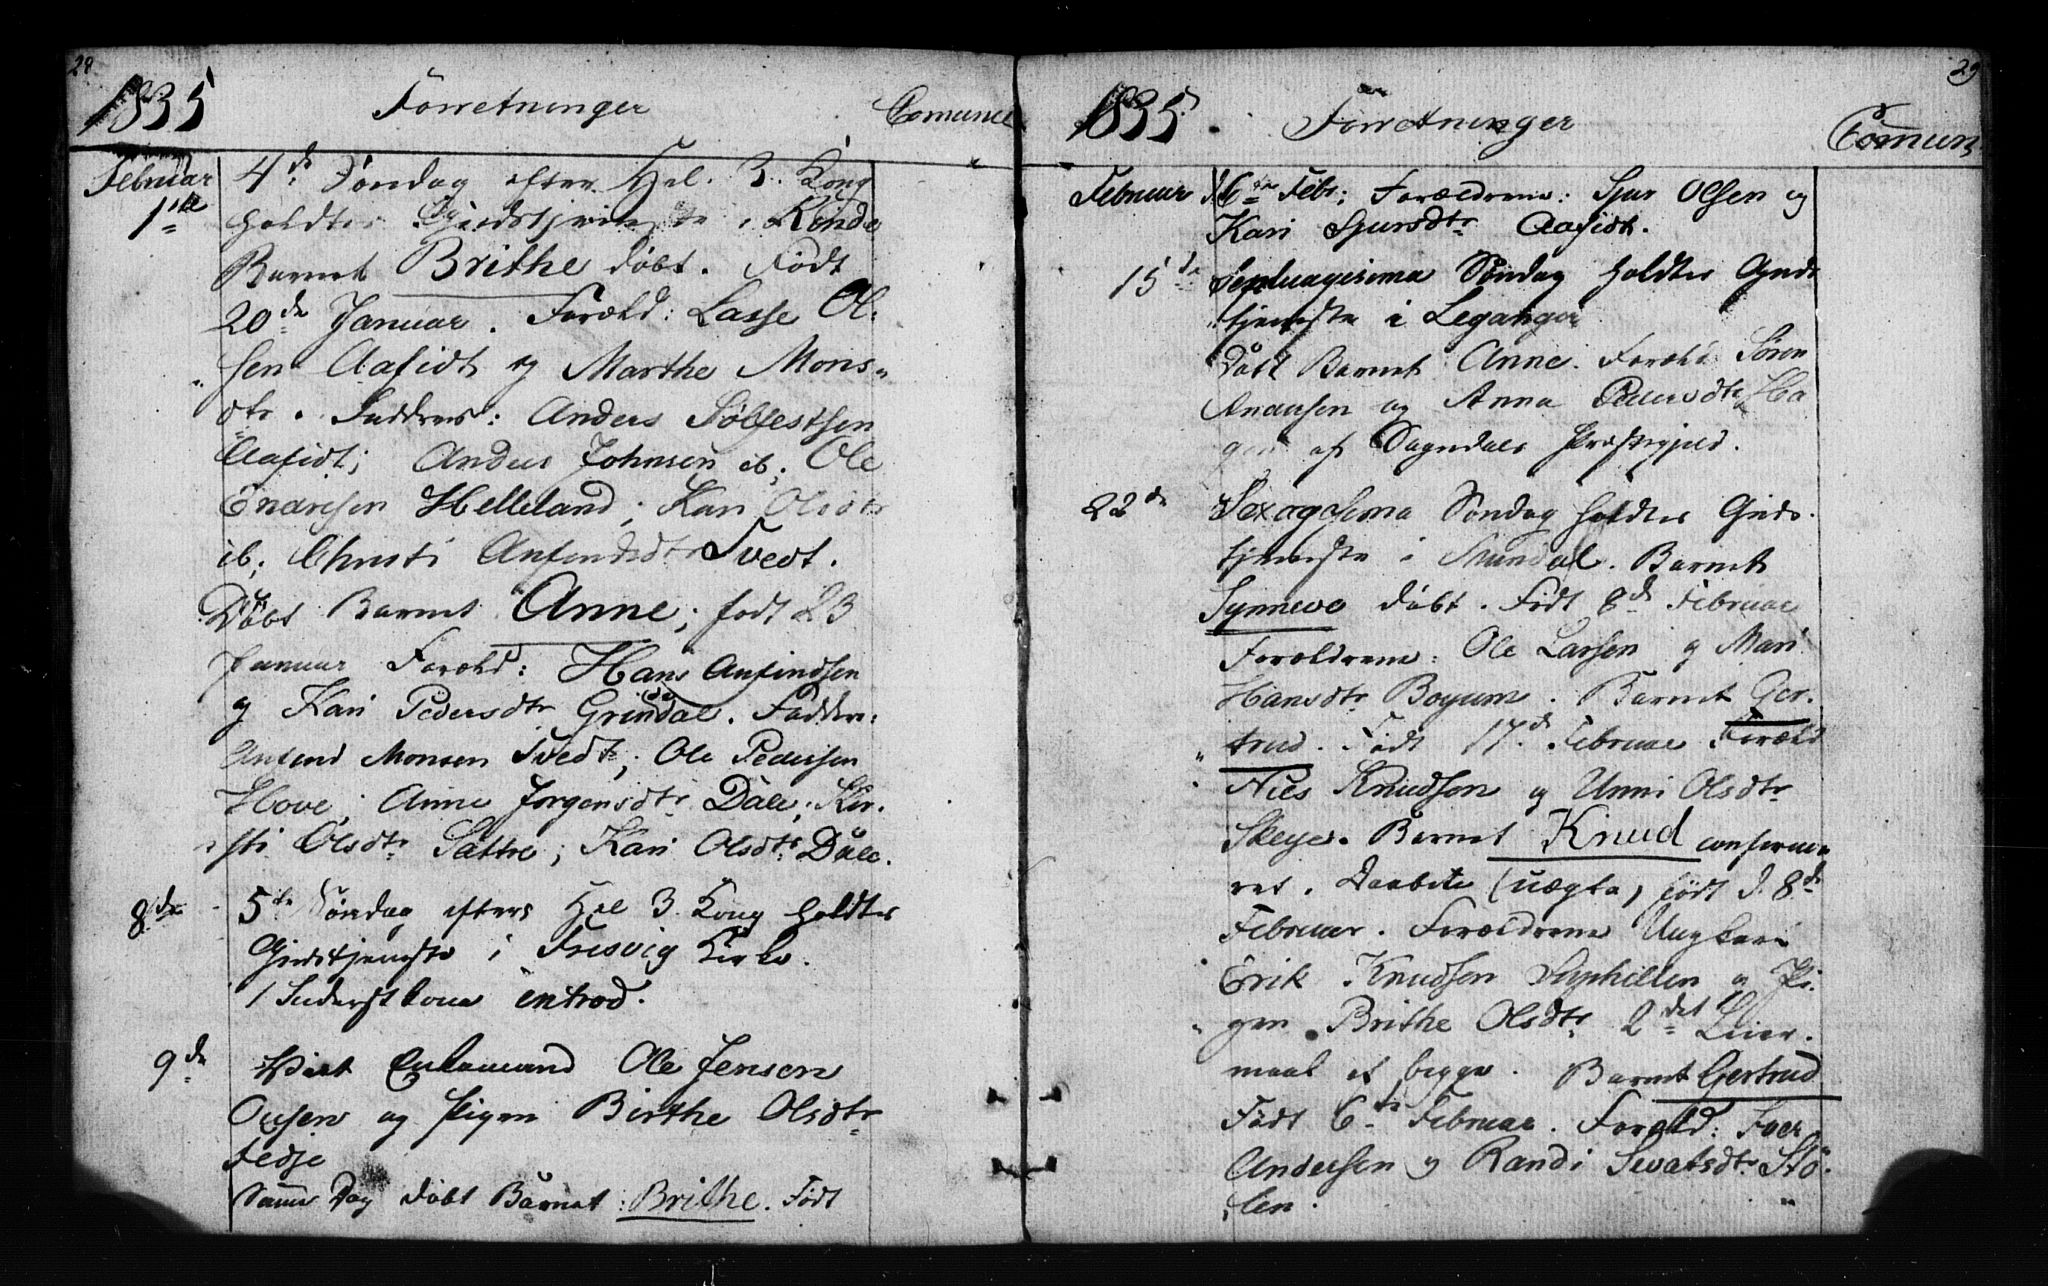 28
1835 Forretninger Comunic
Februar 4de Søndag efter Hel. 3. Kong
1ste holdtes Gudstjeneste i Rinde
Barnet Brithe døbt. Født
20de Januar. Foræld: Lasse Ol-
sen Aafidt og Marthe Mons-
dtr. Faddres: Anders Sølfestsen
Aafidt; Anders Johnsen ib; Ole
Endresen Helleland; Kari Olsdtr
ib; Christi Anfindsdtr Tvedt.
Døbt Barnet Anne; født 23
Januar Foræld: Hans Anfindsen
og Kari Pedersdtr Grindal. Faddre:
Anfind Monsen Tvedt; Ole Pedersen
Hove; Anne Jørgensdtr Dale; Kir-
sti Olsdtr Sættre; Kari Olsdtr Dale.
8de 5te Søndag efter Hel 3. Kong holdtes
Gudstjeneste i Fresvig Kirke.
1 kone introd.
9de Viet Enkemand Ole Jensen
og Pigen Birthe Olsdtr
Fedje
Samme Dag døbt Barnet: Brithe. Født
29
1835. Forretninger Comun
Februar 6te Febr; Forældrene: Sjur Olsen og
Kari Sjursdtr Aafidt.
15de Septuagesima Søndag holdtes Guds-
tjeneste i Leganger
Døbt Barnet Anne. Foræld Søren
Andersen og Anna Pedersdtr Ha
gen af Sogndals Præstegjeld.
22de Sexagesima Søndag holdtes Guds-
tjeneste i Mundal. Barnet
Synneve døbt. Født 8de Februar
Forældrene: Ole Larsen og Mari
Hansdtr Boyum. Barnet Ger-
trud. Født 17de Februar Foræld
Niels Knudsen og Unni Olsdtr
Skeye. Barnet Knud confirme-
ret. Daabete (uægte) født d. 8de
Februar. Forældrene Ungkarl
Erik Knudsen og Pi-
gen Brithe Olsdtr 2det Leier-
maal af begge. Barnet Gertrud
Født 6te Februar. Foræld: Iver
Andersen og Randi Sivatsdtr Stø-
len.